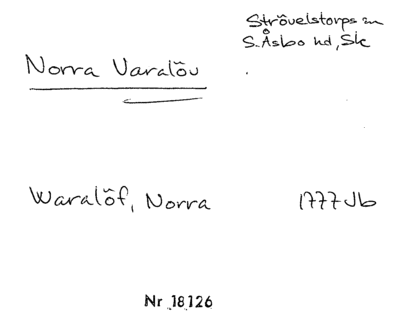 Strövelstorps sn
S. Åsbo hd, Sk
Norra Varalöv
Waralöf, Norra 1777 Jb
Nr 18126